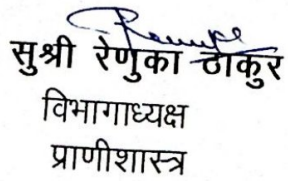 सुश्री रेणुका ठाकुर
विभागाध्यक्ष
प्राणीशास्त्र